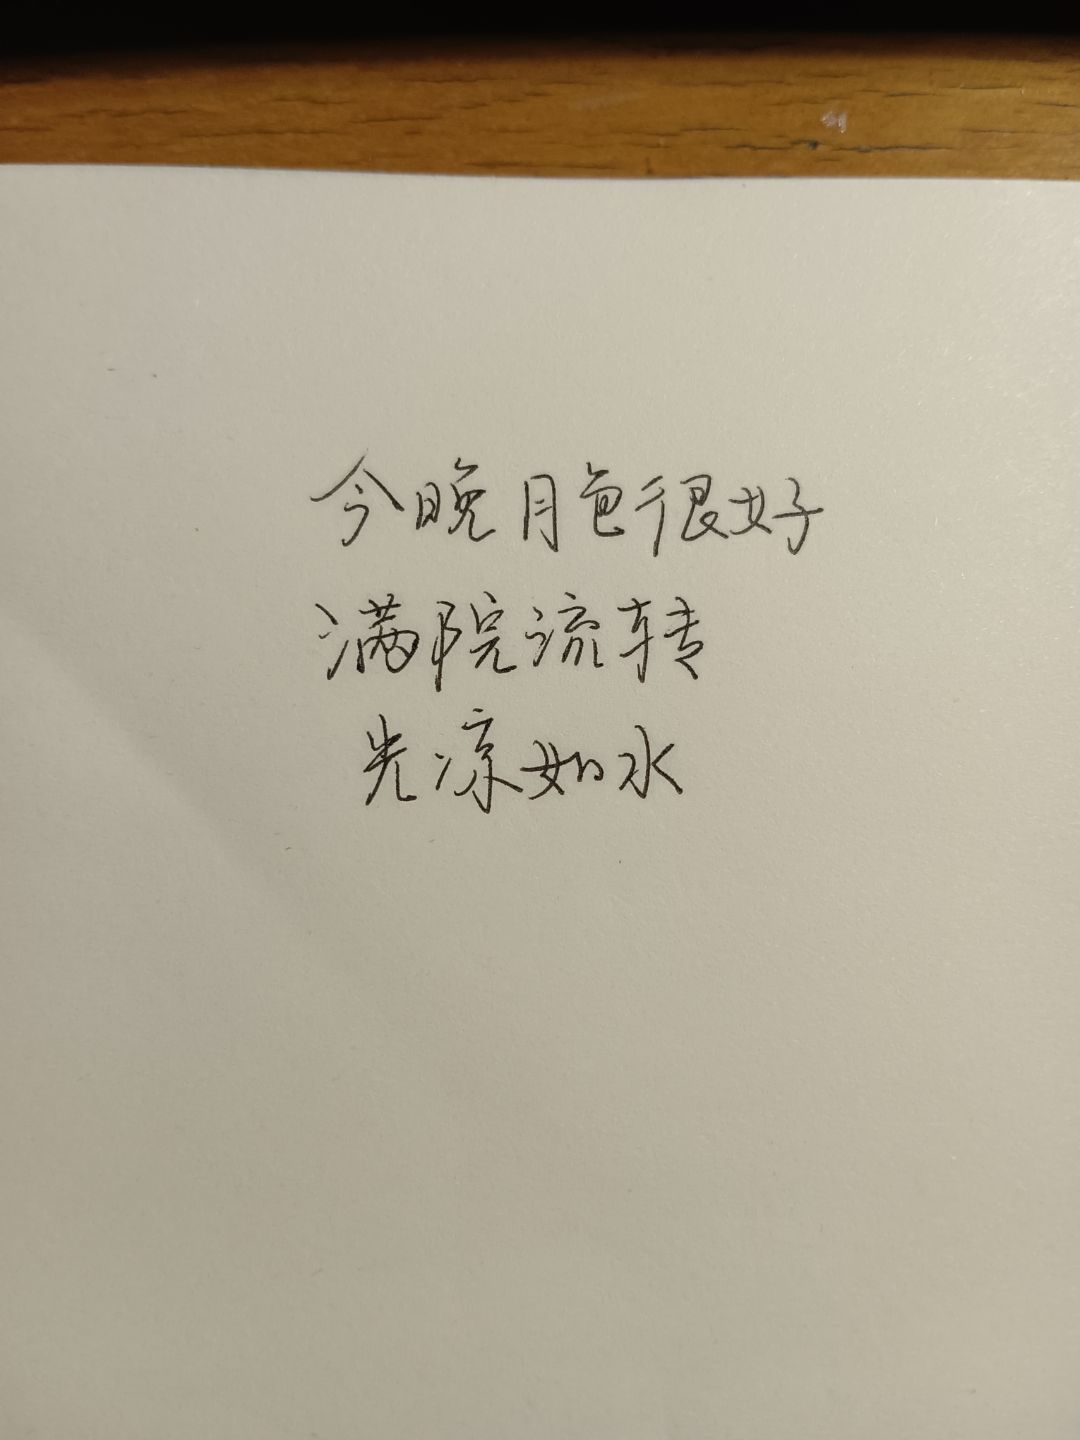 今晚月色很好
满院流转
光凉如水